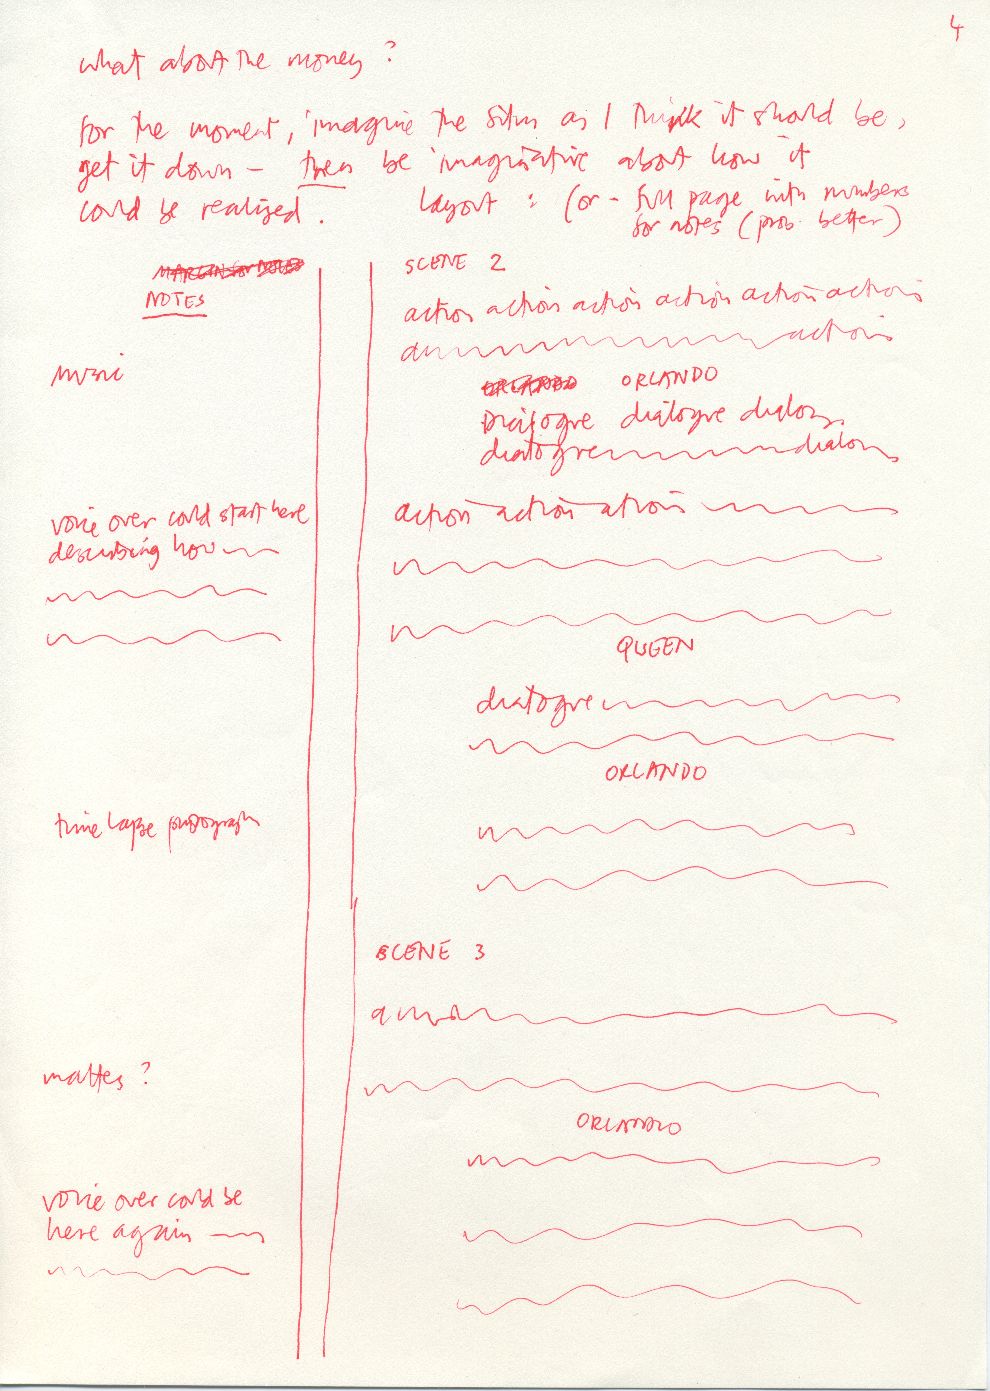 4
what about the money?
for the moment, imagine the film as I think it should be,
get it down – then be imaginative about how it
could be realised.
Layout : (or – full page with numbers
for notes (prob. better)
MARGIN for NOTES
NOTES
SCENE 2
action action action action action action
action
music
ORLANDO ORLANDO
Dialogue dialogue dialog
dialogue dialog
voice over could start here
describing how
action action action
QUEEN
dialogue
ORLANDO
time lapse photograph
SCENE 3
mattes?
ORLANDO
voice over could be
here again